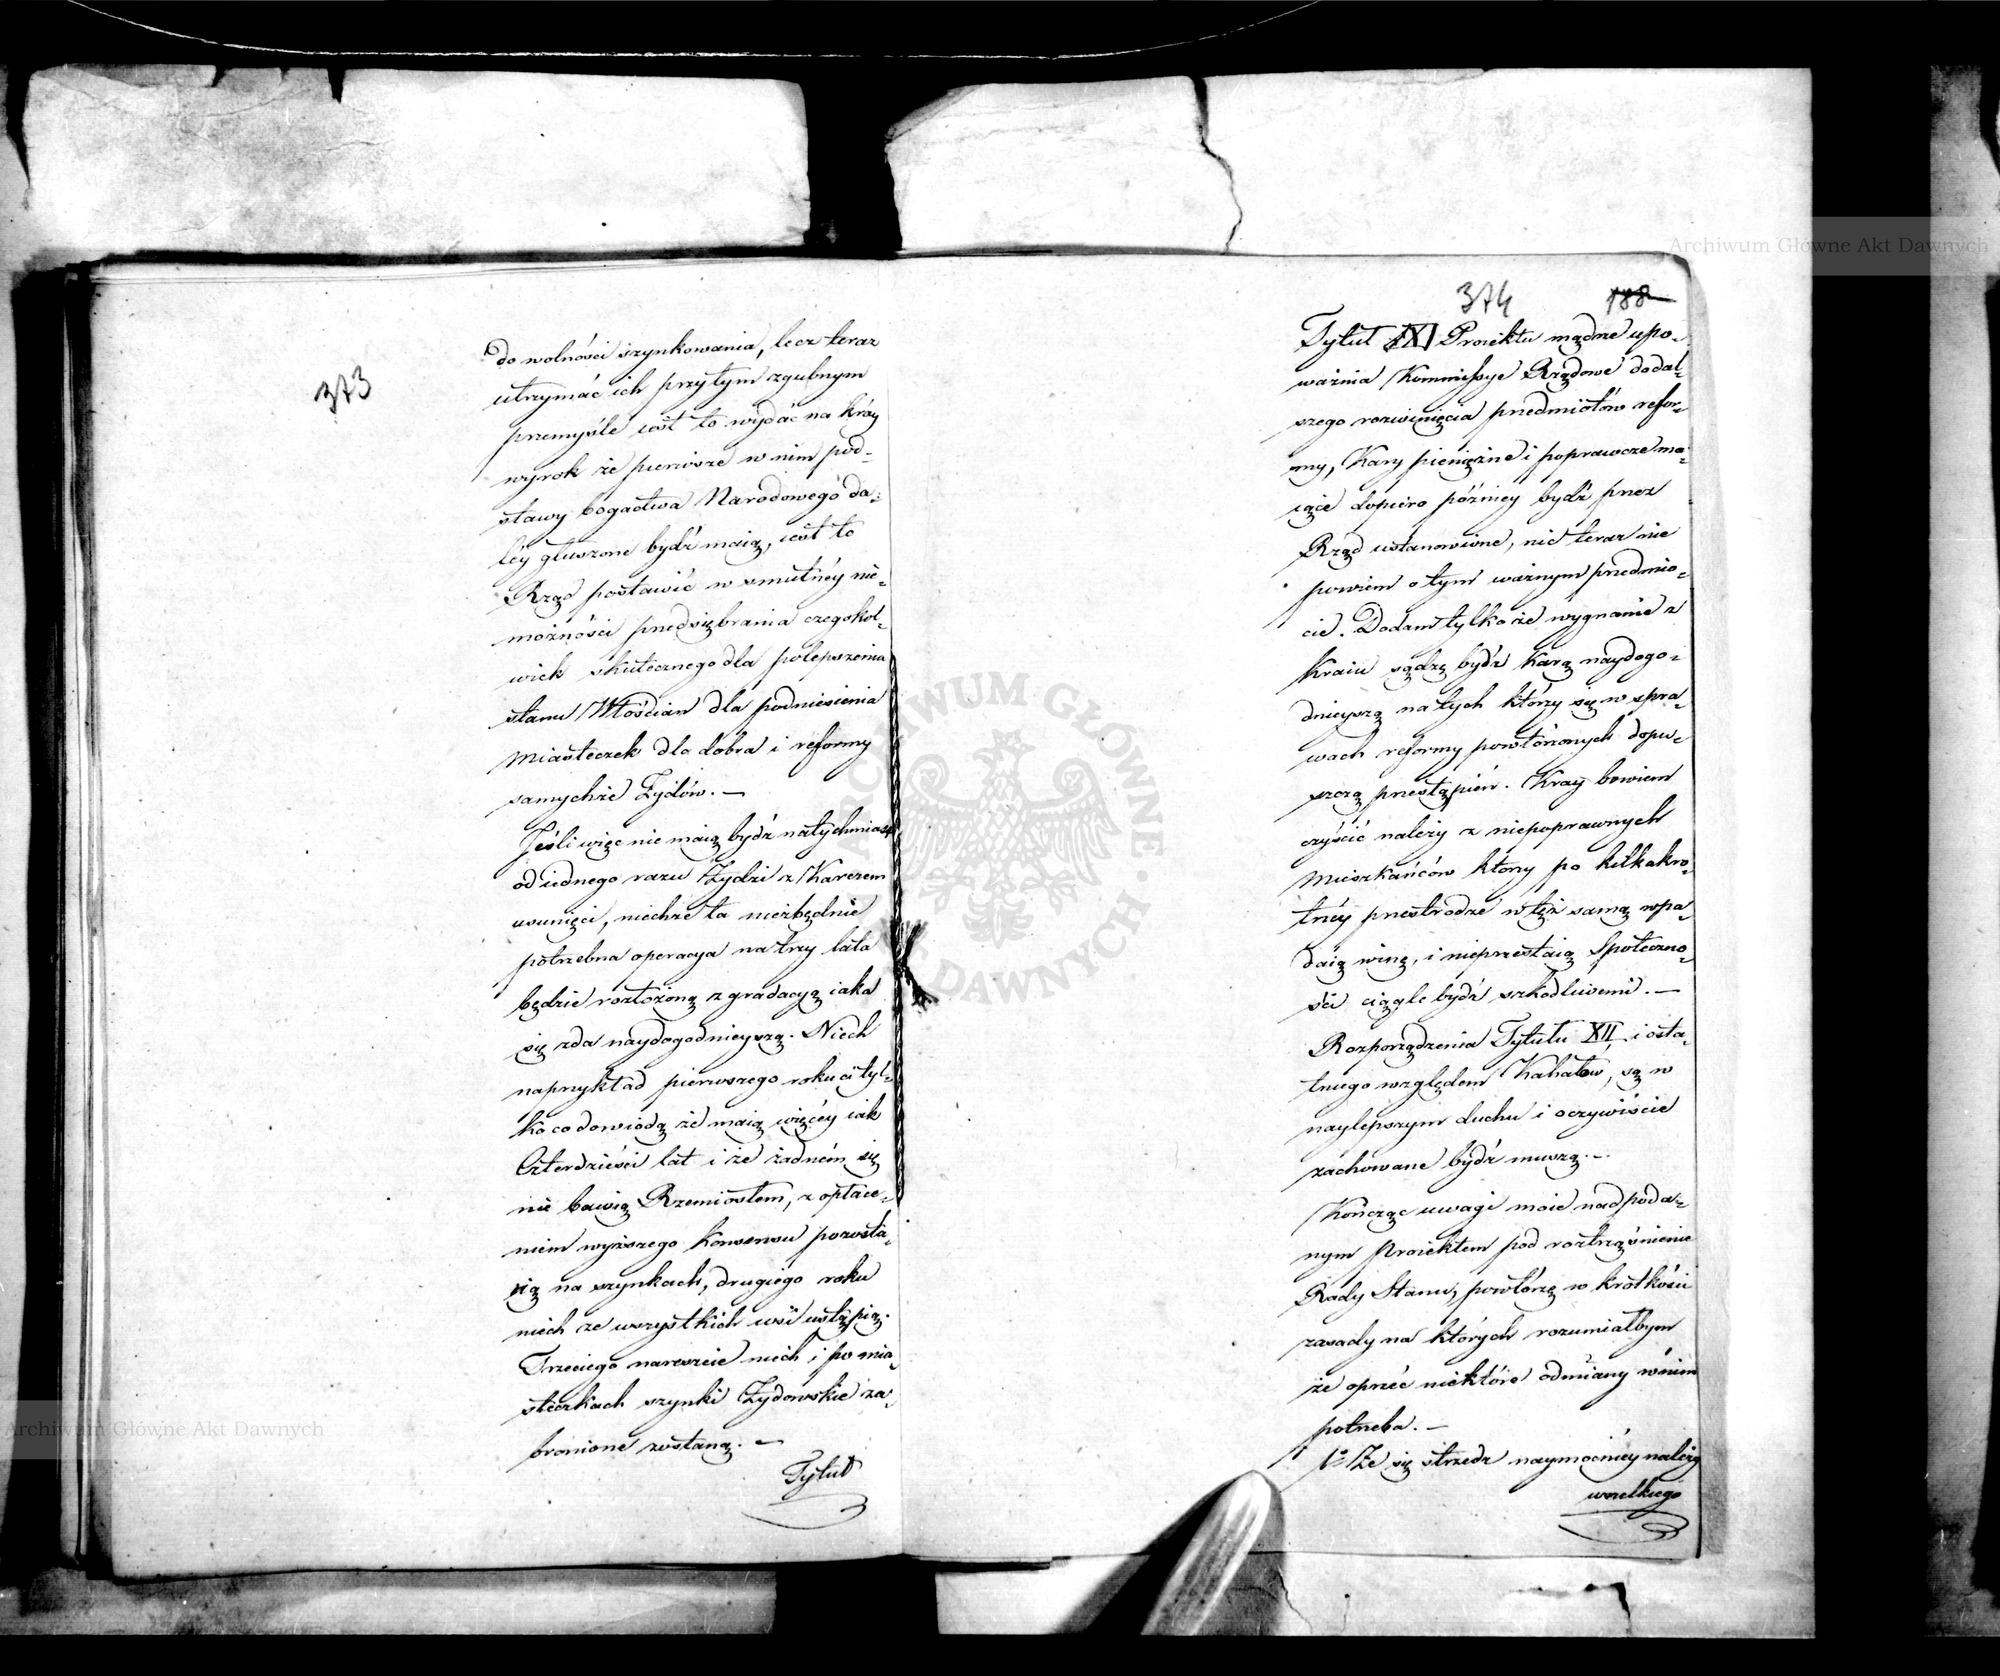 373
do wolności szynkowania, lecz teraz
utrzymać ich przy tym zgubnym
przemyśle iest to wydać na kray
wyrok że pierwsze w nim pod-
stawy bogactwa Narodowego da-
léy głuszone bydź maią, iest to
Rząd postawić w smutnéy nie-
możności przedsiębrania czegokol-
wiek skutecznego dla polepszenia
stanu Włościan dla podniesienia
Miasteczek dla dobra i reformy
samychże Żydów. —
Jeśli więc nie maią bydź natychmiast
od iednego razu Żydzi z Karczem
usunięci, niechże ta niezbędnie
potrzebna operacya na trzy lata
będzie rozłożoną z gradacyą iaka
się zda naydogodnieyszą. Niech
naprzykład pierwszego roku ci tyl-
ko co dowiodą że maią więcéy iak
Czterdzieści lat i że żadném się
nie bawią Rzemiosłem, z opłace-
niem wyższego Konsensu pozosta-
ią na szynkach, drugiego roku
niech ze wszystkich wsi ustąpią.
Trzeciego nareszcie niech i po mia-
steczkach szynki Żydowskie za-
bronione zostaną. —
Tytuł
374
188
Tytuł XI Proiektu mądrze upo-
ważnia Kommissye Rządowe do dal-
szego rozwinięcia przedmiotów refor-
my, Kary pieniężne i poprawcze ma-
iące dopiero późniey bydź przez
Rząd ustanowione, nic teraz nie
powiem o tym ważnym przedmio-
cie. Dodam tylko że wygnanie z
Kraiu sądzę bydź karą naydogo-
dnieyszą na tych którzy się w spra-
wach reformy powtórzonych dopu-
szczą przestąpień. Kray bowiem
czyścić należy z niepoprawnych
Mieszkańców którzy po kilkakro-
tnéy przestrodze w tęż samą wpa-
daią winę, i nieprzestaią Społeczno-
ści ciągle bydź szkodliwemi. —
Rozporządzenia Tytułu XII i osta-
tniego względem Kahałów, są w
naylepszym duchu i oczywiście
zachowane bydź muszą. —
Kończąc uwagi moie nad poda-
nym Proiektem pod roztrząśnienie
Rady Stanu, powtórzę w krótkości
zasady na których rozumiałbym
że oprzeć niektóre odmiany w nim
potrzeba. —
1º Że się strzedz naymocniéy należy
wszelkiego
Archiwum Główne Akt Dawnych
Archiwum Główne Akt Dawnych
ARCHIWUM GŁÓWNE AKT DAWNYCH